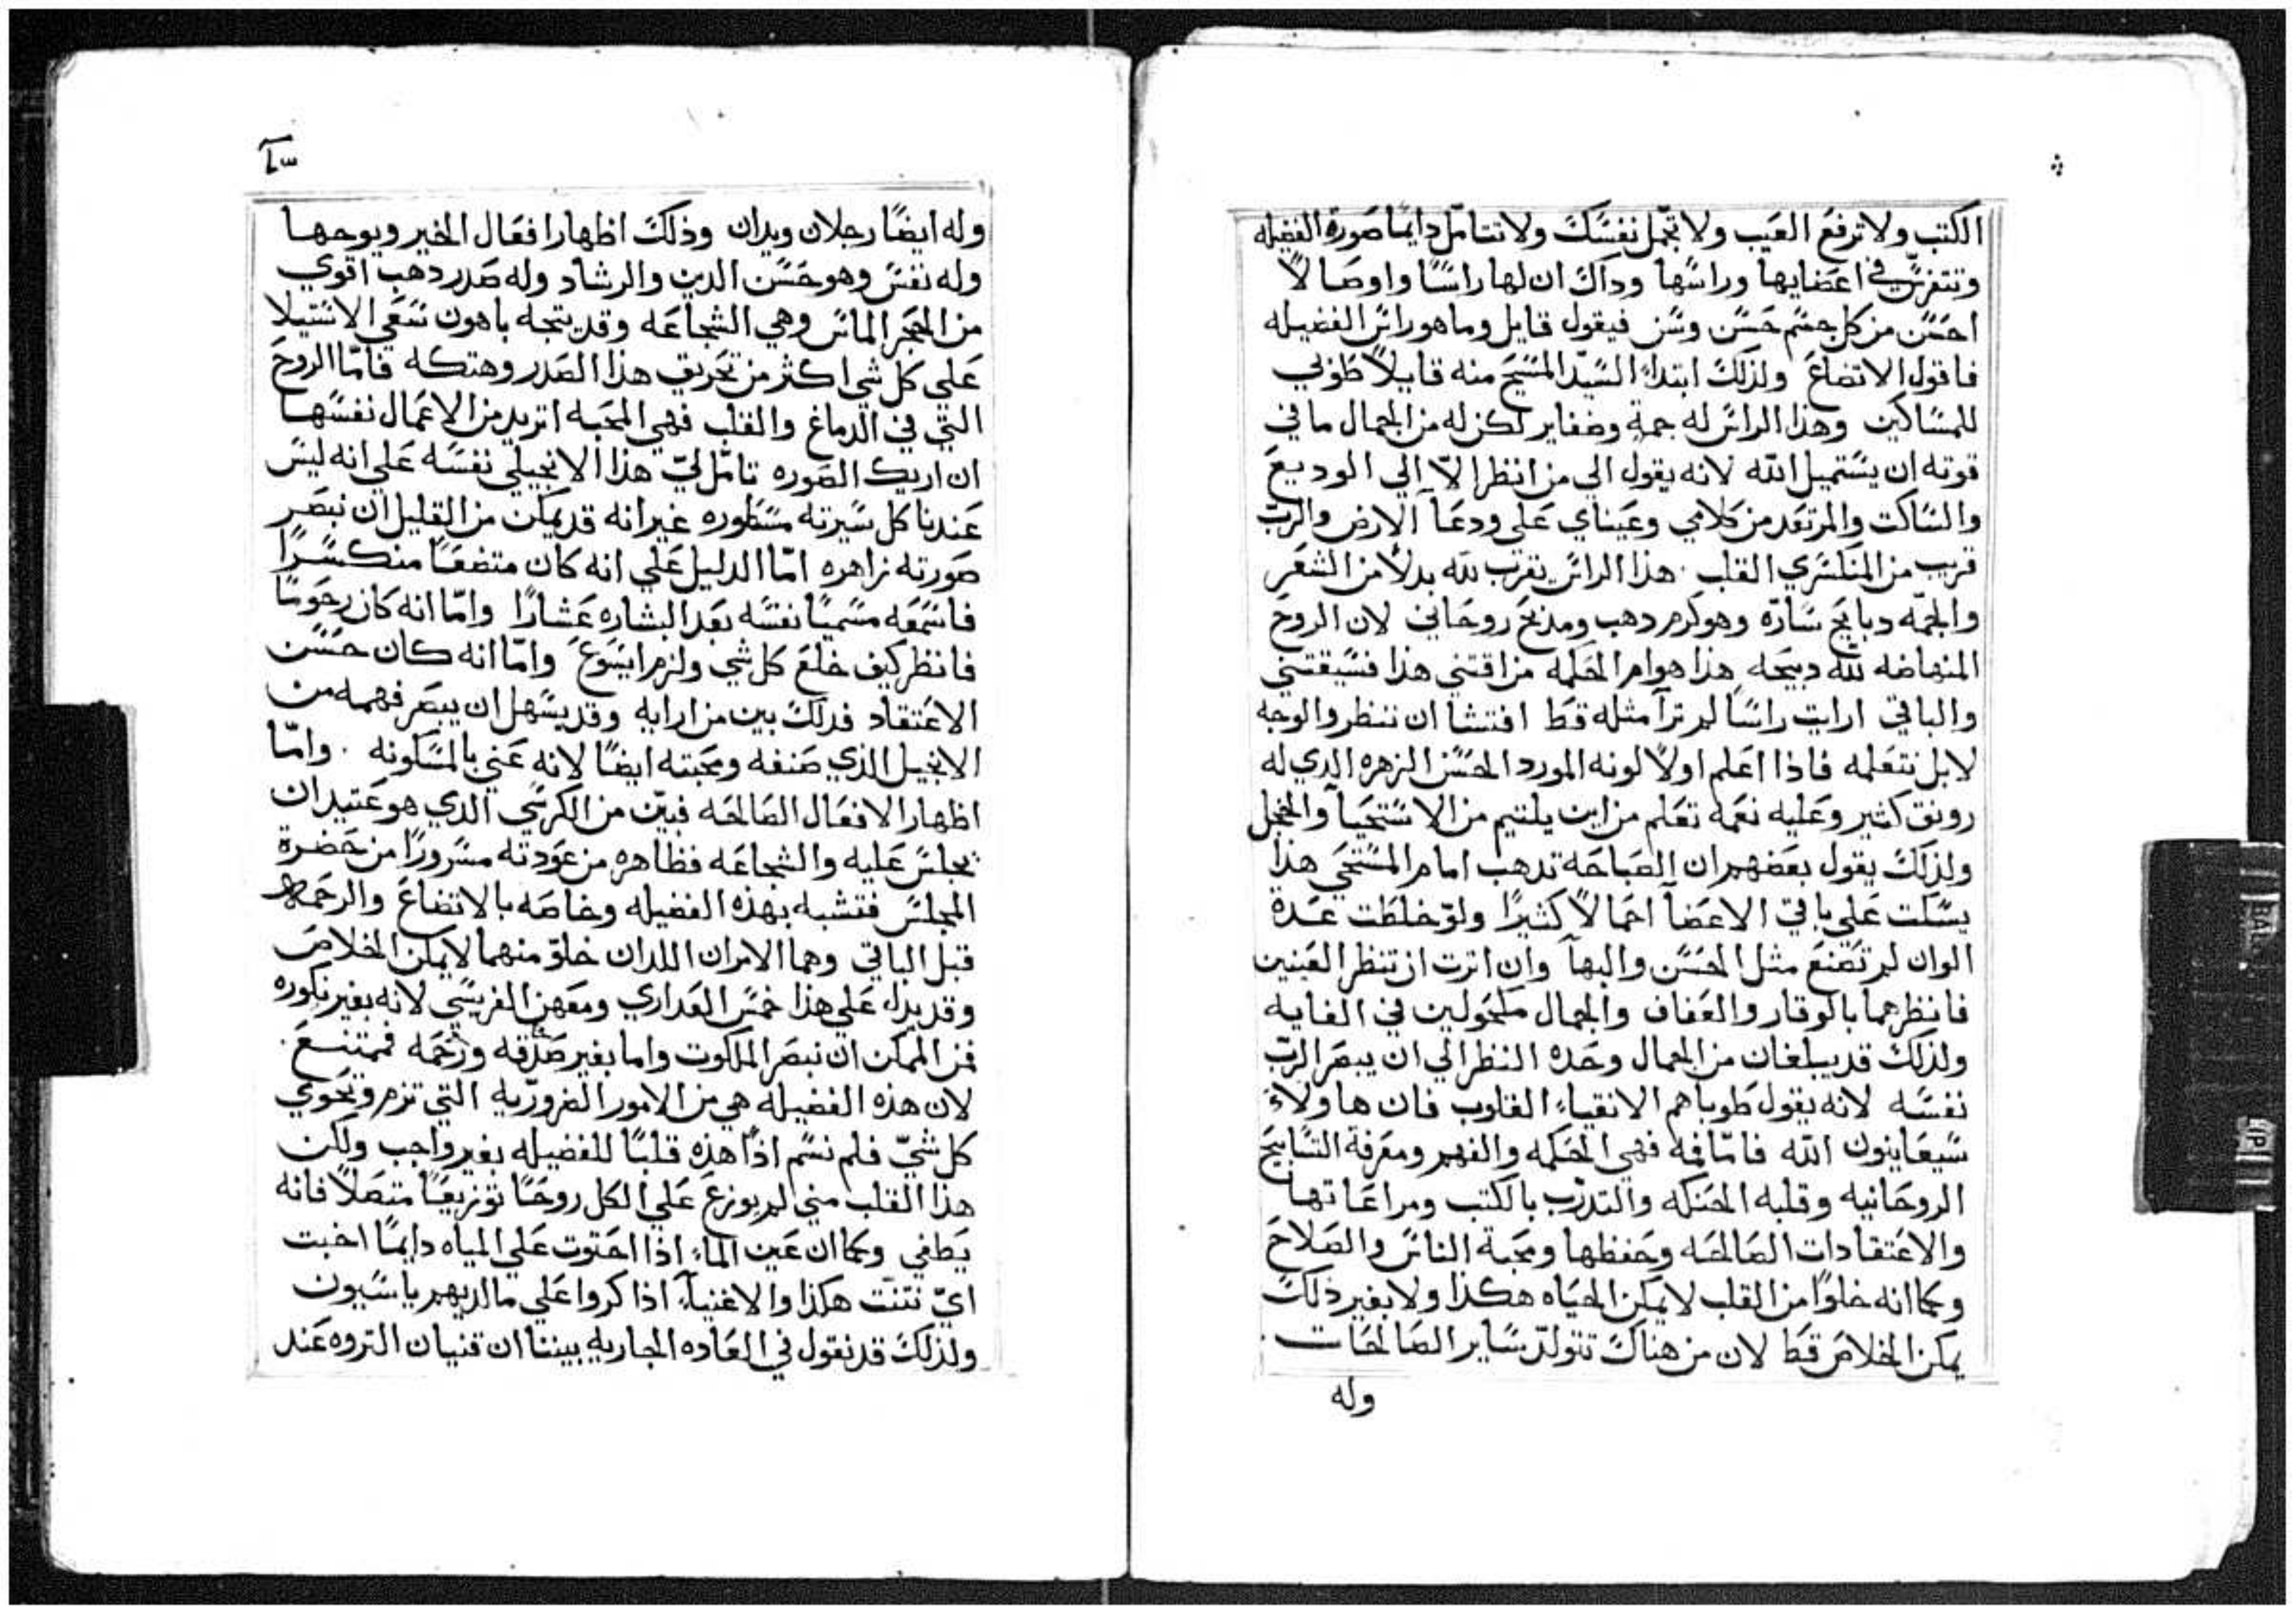 الكتب ولا ترفع العيب ولا تجمل نفسك ولا تتامل دايمًا صورة الفضيله
وتتفرس في اعضايها وراسها وداك ان لها راسًا واوصالاً
احسن من كل جسم حسن وسن فيقول قايل وما هو راس الفضيله
فاقول الاتضاع ولذلك ابتداء السيد المسيح منه قايلاً طوبي
للمساكين وهذا الراس له جمة وضفاير لكن له من الجمال ما في
قوته ان يستميل الله لانه يقول الي من انظر الاّ الي الوديع
والساكت والمرتعد من كلامي وعيناي علي ودعآ الارض والرب
قريب من المنكسري القلب هذا الراس يقرب لله بدلاً من الشعر
والجمّه دبايح سارّه وهو كرم دهب ومدبح روحاني لان الروح
المنهاضه لله دبيحه هذا هو ام الحكمه من اقتني هذا فسيقتني
والباقي ارايت راسًا لم ترآ مثله قط افتشا ان تنظر والوجه
لا بل تتعلمه فاذا اعلم اولاً لونه المورد الحسن الزهره الدي له
رونق كتير وعليه نعمه تعلم من اين يلتيم من الاستحيآ والخجل
ولذلك يقول بعضهم ان الصباحه تدهب امام المستحي هذا
يسكت علي باقي الاعضآ احمالاً كثيرًا ولو خلطت عدة
الوان لم تصنع مثل الحسن والبهآ وان اترت ان تنظر العينين
فانظرهما بالوقار والعفاف والجمال مكحولين في الغايه
ولذلك قد يبلغان من الجمال وحده النظر الي ان يبصر الرب
نفسه لانه يقول طوباهم الانقياء القلوب فان هاولاء
سيعاينون الله فامّا فمه فهي الحكمه والفهم ومعرفة التسابيح
الروحانيه وقلبه الحنكه والتدرّب بالكتب ومراعاتها
والاعتقادات الصالحه وحفظها ومحبة الناس والصلاح
وكما انه خلوًا من القلب لا يمكن الحياه هكذا ولا بغير ذلك
يمكن الخلاص قط لان من هناك تتولد ساير الصالحات
وله
وله ايضًا رجلان ويدان وذلك اظهار افعال الخير ويوجهها
وله نفس وهو حسن الدين والرشاد وله صدر دهب اقوي
من الحجر الماس وهي الشجاعه وقد يتجه باهون سعي الاستيلا
علي كل شي اكثر من تخريق هذا الصدر وهتكه فامّا الروح
التي في الدماغ والقلب فهي المحبه اتريد من الاعمال نفسها
ان اريك الصوره تامّل ليّ هذا الانجيلي نفسه علي انه ليس
عندنا كل سيرته مسطوره غير انه قد يمكن من القليل ان نبصر
صورته زاهره امّا الدليل علي انه كان متضعًا منكسرًا
فاسمعه مسميًا نفسه بعد البشاره عشارًا وامّا انه كان رحومًا
فانظر كيف خلع كل شي ولزم ايسوع وامّا انه كان حسن
الاعتقاد فدلك بين من ارايه وقد يسهل ان يبصر فهمه من
الانجيل الذي صنفه ومحبته ايضًا لانه عني بالمسكونه . وامّا
اظهار الافعال الصالحه فبيّن من الكرسي الدي هو عتيد ان
يجلس عليه والشجاعه فظاهره من عودته مسرورًا من حضرة
المجلس فتشبه بهذه الفضيله وخاصه بالاتضاع والرحمه
قبل الباقي وهما الامران اللدان خلوّ منهما لا يمكن الخلاص
وقد يدل علي هذا خمس العداري ومعهن الفريسي لانه بغير بكوره
فمن الممكن ان نبصر الملكوت واما بغير صدقه ورحمه فممتنع
لان هذه الفضيله هي من الامور الضروريه التي تزم وتحوي
كل شيّ فلم نسم اذًا هذه قلبًا للفضيله بغير واجب ولكن
هذا القلب مني لم يوزع علي الكل روحًا توزيعًا متصلاً فانه
يطفي وكما ان عين الماء اذا احتوت علي المياه دايمًا اخبت
ايّ نتنت هكذا والاغنياء اذا كروا علي ما لديهم ياسيون
ولذلك قد نقول في العاده الجاريه بيننا ان قنيان التروه عند